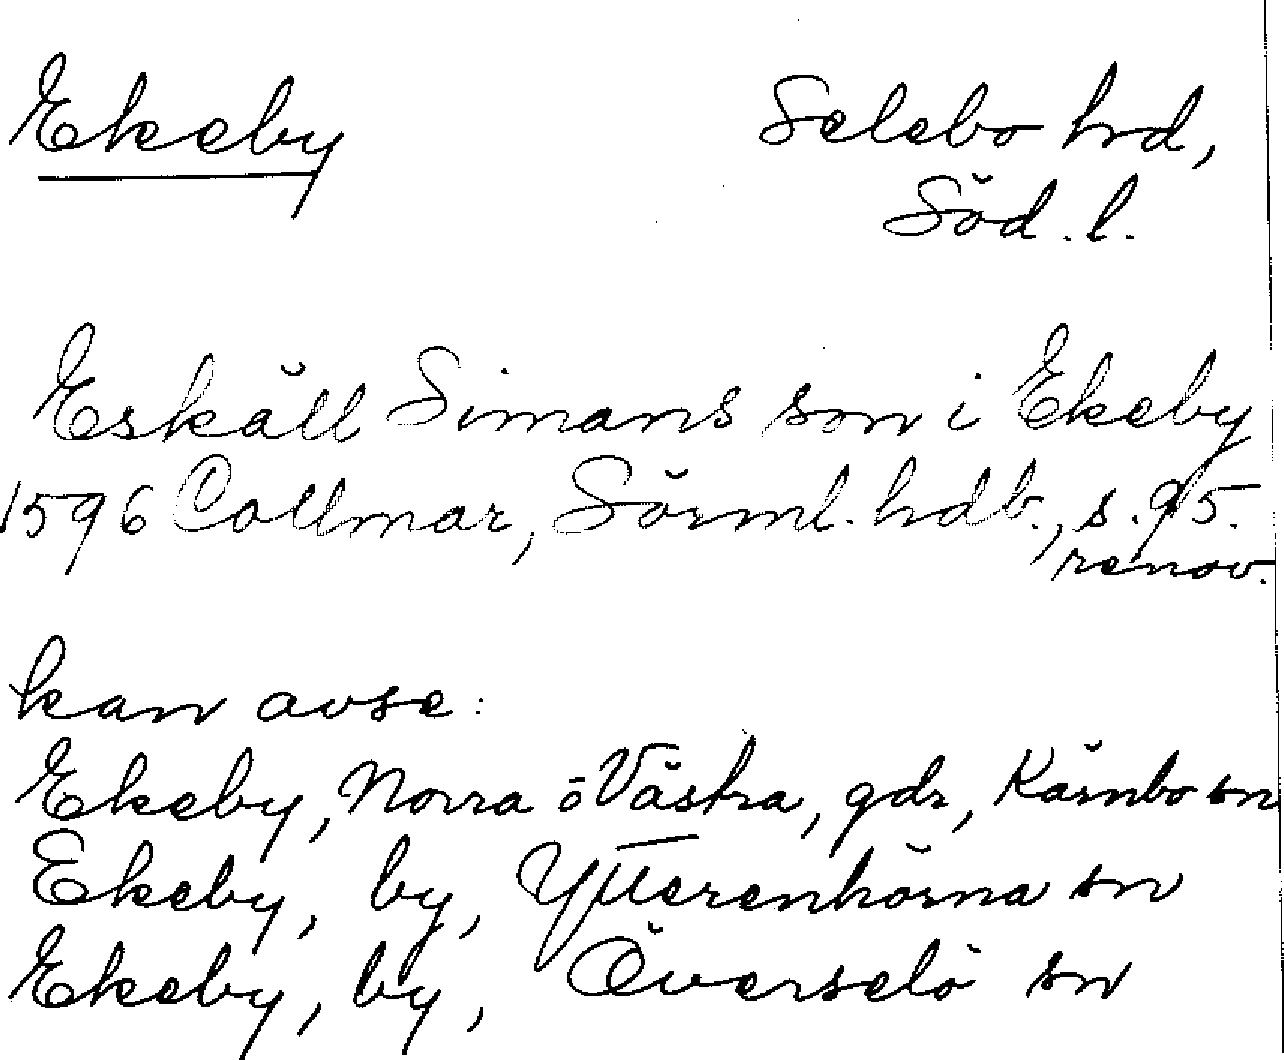 Ekeby Selebo hrd,
Söd. l.
Eskäll Simans son i Ekeby
1596 Collmar, Sörml. hdb., s. 95.
renov.
kan avse:
Ekeby, Norra o Västra, gdr, Kärnbo sn
Ekeby, by, Ytterenhörna sn
Ekeby, by, Överselö sn